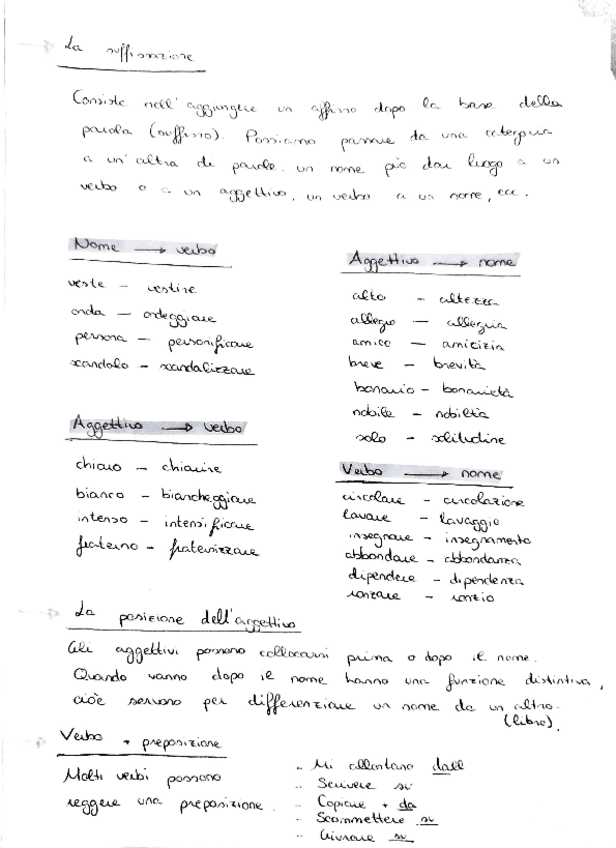 La suffissazione
Consiste nell'aggiungere un affisso dopo la base della
parola (suffisso). Possiamo passare da una categoria
a un'altra di parole. un nome può dar luogo a un
verbo o a un aggettivo, un verbo a un nome, ecc.
Nome → verbo
veste – vestire
onda – ondeggiare
persona – personificare
scandalo – scandalizzare
Aggettivo → verbo
chiaro – chiarire
bianco – biancheggiare
intenso – intensificare
fraterno – fraternizzare
Aggettivo → nome
alto – altezza
allegro – allegria
amico – amicizia
breve – brevità
bonario – bonarietà
nobile – nobiltà
solo – solitudine
Verbo → nome
circolare – circolazione
lavare – lavaggio
insegnare – insegnamento
abbondare – abbondanza
dipendere – dipendenza
ronzare – ronzio
La posizione dell'aggettivo
Gli aggettivi possono collocarsi prima o dopo il nome.
Quando vanno dopo il nome hanno una funzione distintiva,
cioè servono per differenziare un nome da un altro.
(libro).
Verbo + preposizione
Molti verbi possono
reggere una preposizione.
Mi allontano dall
Scrivere su
Copiare + da
Scommettere su
Giurare su